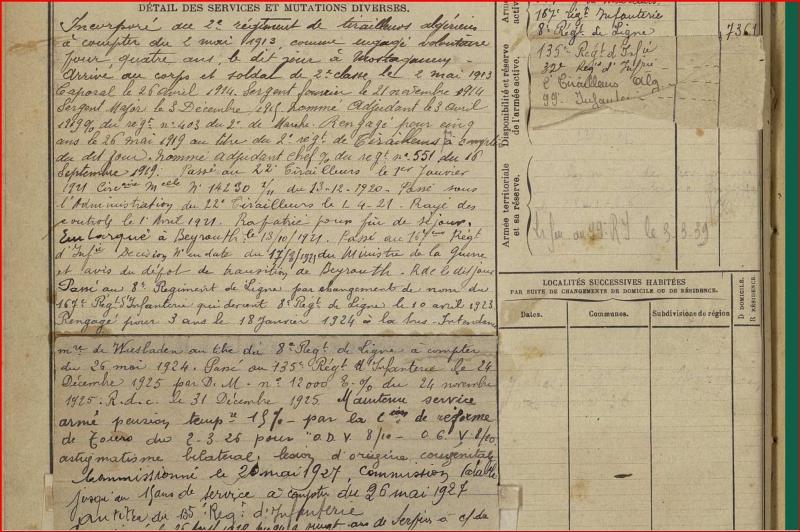 DÉTAIL DES SERVICES ET MUTATIONS DIVERSES.
Incorporé au 2e régiment de tirailleurs algériens
à compter du 2 mai 1913, comme engagé volontaire
pour quatre ans, le dit jour à Mostaganem
Arrivé au corps et soldat de 2e classe, le 2 mai 1913
Caporal le 26 avril 1914. Sergent fourrier le 21 novembre 1914
Sergent Major le 3 Décembre 1915. Nommé Adjudant le 3 avril
1919 % du régt n° 403 du 2e de Marche. Rengagé pour cinq
ans le 26 mai 1919 au titre du 2e régt de Tirailleurs à compter
du dit jour. Nommé adjudant chef % du régt n° 551 du 16
Septembre 1919. Passé au 22e Tirailleurs le 1er Janvier
1921 N° 14230 1/11 du 13-12-1920. Passé sous
l'Administration du 22e Tirailleurs le 1-4-21. Rayé des
controls le 1er Avril 1921. Rapatrié pour fin de séjour.
Embarqué à Beyrouth le 13/10/1921. Passé au 167ème Régt
d'Infie Décision N° en date du 17/8/1921 du Ministre de la Guerre
et avis du dépot de transition de Beyrouth. Rdc le dit jour
Passé au 8e Regiment de Ligne par changement de nom du
167e Régt d'Infanterie qui devient 8e Régt de Ligne le 10 avril 1923.
Rengagé pour 3 ans le 18 Janvier 1924 à la Sous-Intendan
de Wiesbaden au titre du 8e Regt de Ligne à compter
du 26 mai 1924. Passé au 135e Régt d'Infanterie le 24
Décembre 1925 par D.M. n° 12000 du 24 novembre
1925. R.d.c. le 31 Décembre 1925. Maintenu service
armé pension tempre 15% par la Con de réforme
de Tours du 2-3-26 pour "O.D. V. 8/10 - O.G. V. 8/10
astigmatisme bilatéral; lesion d'origine congenitale
Commissionné le 26 mai 1927, commission valable
jusqu'au 15 ans de service à compter du 26 mai 1927
au titre du 135e Regt d'Infanterie
ans de service à c/ du
Armée
active.
167e régt Infanterie
8e Régt de Ligne
7361
Disponibilité et réserve
de l'armée active.
135e Régt d'Infie
32e Régt d'Infie
2e Tirailleurs Alg.
99e Infanterie
Armée territoriale
et sa réserve.
99e R.I. le 3.3.39
LOCALITÉS SUCCESSIVES HABITÉES
PAR SUITE DE CHANGEMENTS DE DOMICILE OU DE RÉSIDENCE.
D DOMICILE.
R RÉSIDENCE.
Dates.
Communes.
Subdivisions de région